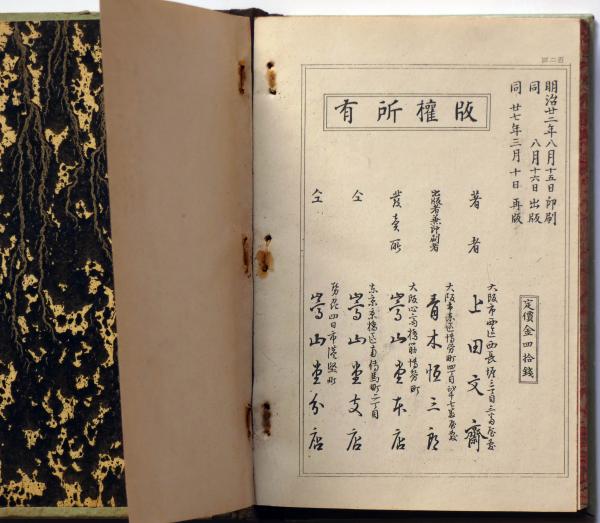 明治廿二年八月十五日 印刷
同 八月十六日 出版
同 廿七年三月十日 再版
版權所有
定價金四拾錢
大阪市西區西長堀三丁目三番屋敷
著者 上田文齋
大阪市東區博勞町四丁目
出版者兼印刷者 青木恒三郎
大阪心齋橋筋博勞町
發賣所 嵩山堂本店
東京京橋區南傳馬町二丁目
仝 嵩山堂支店
勢州四日市港竪町
仝 嵩山堂分店